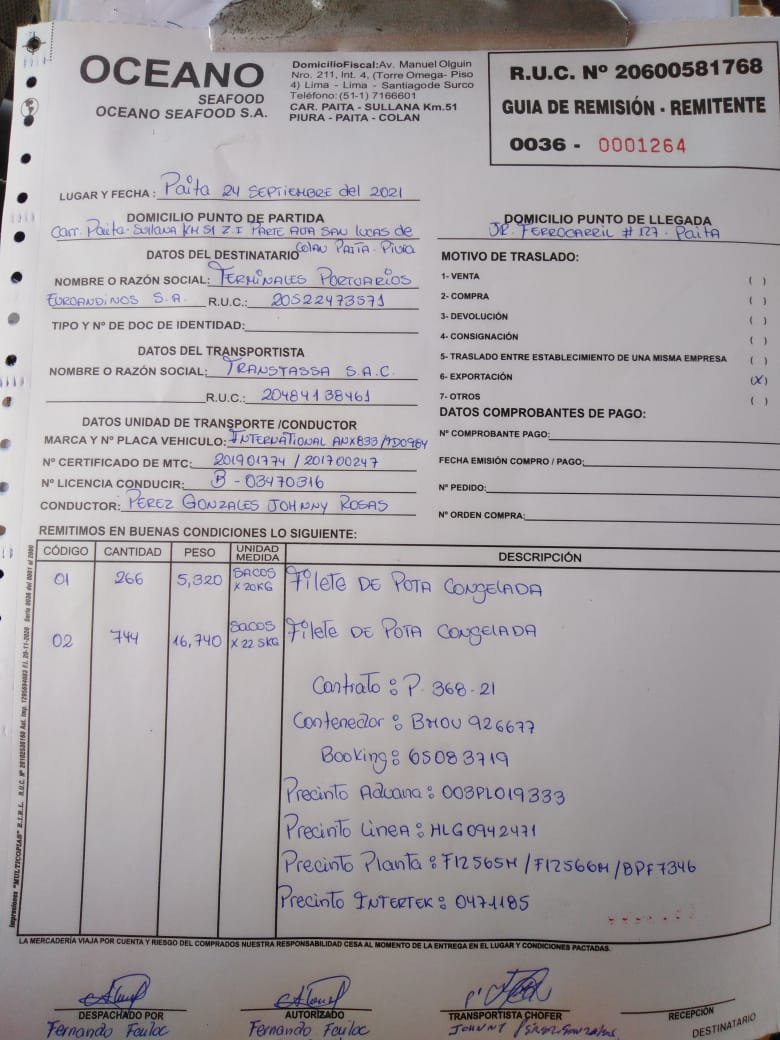 OCEANO
SEAFOOD
OCEANO SEAFOOD S.A.
DomicilioFiscal:Av. Manuel Olguin
Nro. 211, Int. 4, (Torre Omega- Piso
4) Lima - Lima - Santiagode Surco
Teléfono:(51-1) 7166601
CAR. PAITA - SULLANA Km.51
PIURA - PAITA - COLAN
R.U.C. Nº 20600581768
GUIA DE REMISIÓN - REMITENTE
0036 - 0001264
LUGAR Y FECHA : Paita 24 SEPTIEMBRE del 2021
DOMICILIO PUNTO DE PARTIDA
Carr. Paita-Sullana KM 51 Z.I PARTE ALTA SAN LUCAS de
COLAN PAITA - Piura
DOMICILIO PUNTO DE LLEGADA
JR. FERROCARRIL # 127 - Paita
DATOS DEL DESTINATARIO
NOMBRE O RAZÓN SOCIAL: TERMINALES PORTUARIOS
EUROANDINOS S.A. R.U.C.: 20522473571
TIPO Y Nº DE DOC DE IDENTIDAD:
DATOS DEL TRANSPORTISTA
NOMBRE O RAZÓN SOCIAL: TRANSTASSA S.A.C.
R.U.C.: 20484138461
DATOS UNIDAD DE TRANSPORTE /CONDUCTOR
MARCA Y Nº PLACA VEHICULO: INTERNATIONAL ANX833/
Nº CERTIFICADO DE MTC: 201901774 / 201700247
Nº LICENCIA CONDUCIR: B - 03470316
CONDUCTOR: PEREZ GONZALES JOHNNY ROSAS
MOTIVO DE TRASLADO:
1- VENTA ( )
2- COMPRA ( )
3- DEVOLUCIÓN ( )
4- CONSIGNACIÓN ( )
5- TRASLADO ENTRE ESTABLECIMIENTO DE UNA MISMA EMPRESA ( )
6- EXPORTACIÓN (X)
7- OTROS ( )
DATOS COMPROBANTES DE PAGO:
Nº COMPROBANTE PAGO:
FECHA EMISIÓN COMPRO / PAGO:
Nº PEDIDO:
Nº ORDEN COMPRA:
REMITIMOS EN BUENAS CONDICIONES LO SIGUIENTE:
CÓDIGO CANTIDAD PESO UNIDAD MEDIDA DESCRIPCIÓN
01 266 5,320 SACOS X 20KG FILETE DE POTA CONGELADA
02 744 16,740 SACOS X 22.5KG FILETE DE POTA CONGELADA
Contrato : P. 368-21
Contenedor : BMOU 926677
Booking : 65083719
Precinto Aduana : 003PL019333
Precinto Linea : HLG0942471
Precinto Planta : F12565M / F12566M / BPF7346
Precinto INTERTEK : 0471185
LA MERCADERÍA VIAJA POR CUENTA Y RIESGO DEL COMPRADOS NUESTRA RESPONSABILIDAD CESA AL MOMENTO DE LA ENTREGA EN EL LUGAR Y CONDICIONES PACTADAS.
DESPACHADO POR
Fernando
AUTORIZADO
Fernando
TRANSPORTISTA CHOFER
JOHNNY
RECEPCIÓN
DESTINATARIO